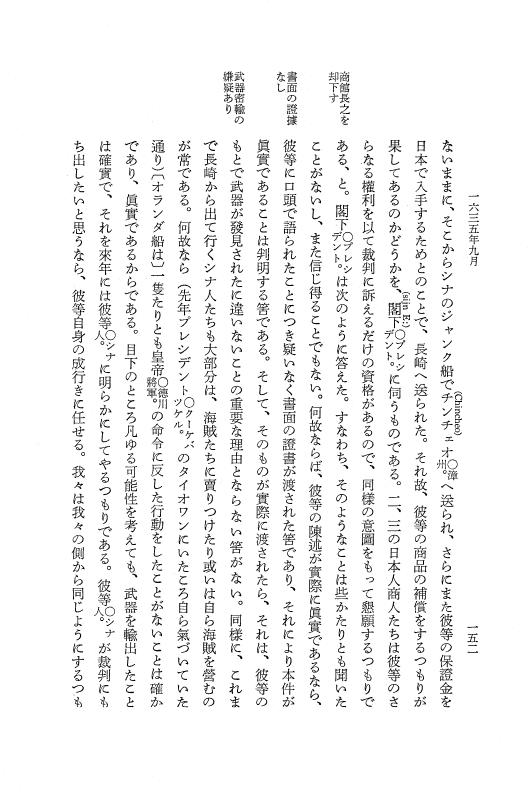 一六三五年九月
一五二
ないままに、そこからシナのジャンク船でチンチェオ(Chincheo)〇漳州。へ送られ、さらにまた彼等の保證金を
日本で入手するためとのことで、長崎へ送られた。それ故、彼等の商品の補償をするつもりが
果してあるのかどうかを、閣下(sijn E.)〇プレシデント。に伺うものである。二、三の日本人商人たちは彼等のさ
らなる權利を以て裁判に訴えるだけの資格があるので、同様の意圖をもって懇願するつもりで
商館長之を却下す
ある、と。閣下〇プレシデント。は次のように答えた。すなわち、そのようなことは些かたりとも聞いた
ことがないし、また信じ得ることでもない。何故ならば、彼等の陳述が實際に眞實であるなら、
書面の證據なし
彼等に口頭で語られたことにつき疑いなく書面の證書が渡された筈であり、それにより本件が
眞實であることは判明する筈である。そして、そのものが實際に渡されたら、それは、彼等の
武器密輸の嫌疑あり
もとで武器が發見されたに違いないことの重要な理由とならない筈がない。同様に、これま
で長崎から出て行くシナ人たちも大部分は、海賊たちに賣りつけたり或いは自ら海賊を營むの
が常である。何故なら（先年プレシデント〇クーケバツケル。のタイオワンにいたころ自ら氣づいていた
通り）〔オランダ船は〕一隻たりとも皇帝〇德川將軍。の命令に反した行動をしたことがないことは確か
であり、眞實であるからである。目下のところ凡ゆる可能性を考えても、武器を輸出したこと
は確實で、それを來年には彼等〇シナ人。に明らかにしてやるつもりである。彼等〇シナ人。が裁判にも
ち出したいと思うなら、彼等自身の成行きに任せる。我々は我々の側から同じようにするつも